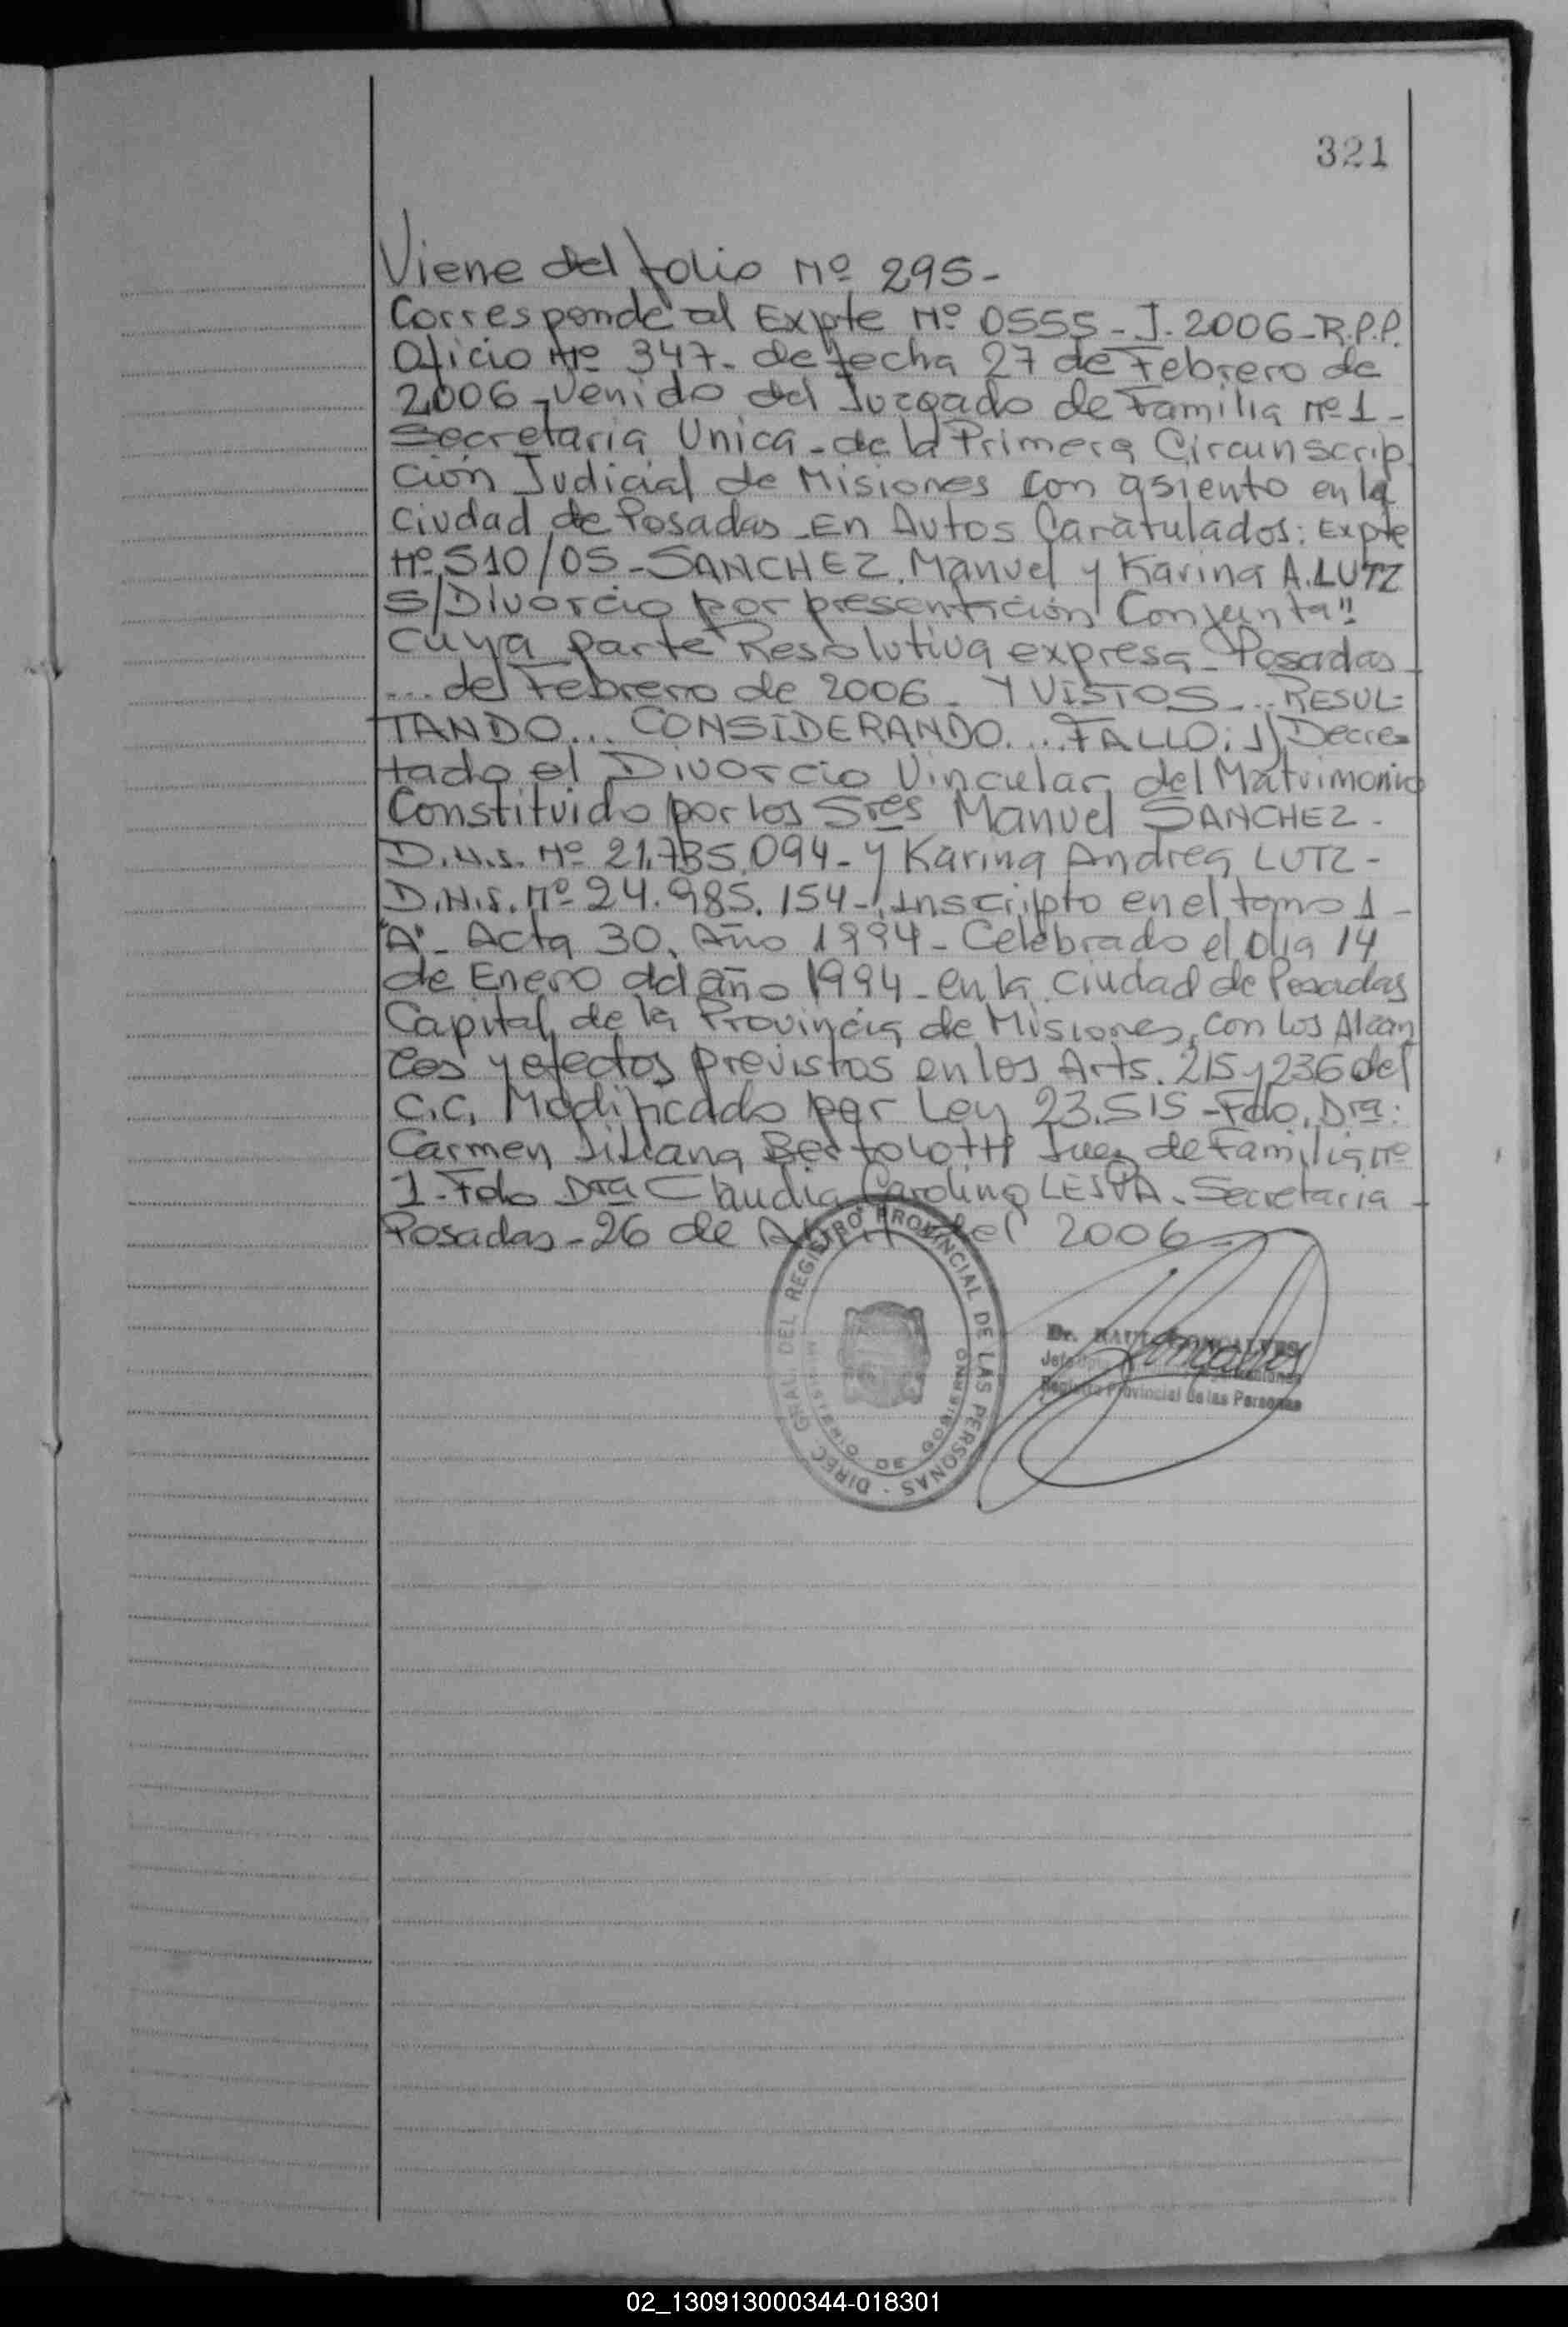 321
Viene del folio Nº 295-
Corresponde al Expte Nº 0555-J-2006-R.P.P.
Oficio Nº 347- de fecha 27 de Febrero de
2006-Venido del Juzgado de Familia nº 1-
Secretaria Unica-de la Primera Circunscrip
ción Judicial de Misiones con asiento en la
Ciudad de Posadas-En Autos Caratulados: Expte
Nº 510/05-SANCHEZ, Manuel y Karina A. LUTZ
S/Divorcio por presentación Conjunta"
Cuya parte Resolutiva expresa-Posadas-
... de Febrero de 2006- Y VISTOS... RESUL=
TANDO... CONSIDERANDO... FALLO: 1) Decre=
tado el Divorcio Vincular del Matrimonio
Constituido por los Sres Manuel SANCHEZ-
D.N.I. Nº 21.735.094- y Karina Andrea LUTZ-
D.N.I. Nº 24.985.154-, Inscripto en el tomo 1-
"A"- Acta 30, Año 1994- Celebrado el día 14
de Enero del año 1994- en la Ciudad de Posadas
Capital de la Provincia de Misiones, con los Alcan
ces y efectos previstos en los Arts. 215 y 236 del
C.C. Modificado por Ley 23.515-Fdo. Dra:
Carmen Liliana Bertolotti Juez de Familia nº
1-Fdo Dra Claudia Carolina LESPA-Secretaria-
Posadas-26 de Abril del 2006-
DIREC. GRAL. DEL REGISTRO PROVINCIAL DE LAS PERSONAS -
MINISTERIO DE GOBIERNO
Dr. RAUL GONCALVES
Jefe Dpto.
Registro Provincial de las Personas
02_130913000344-018301